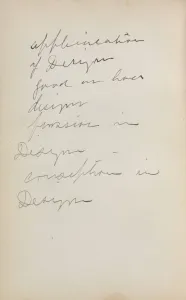 application
of Design
good on
design
in
Design -
conception in
Design